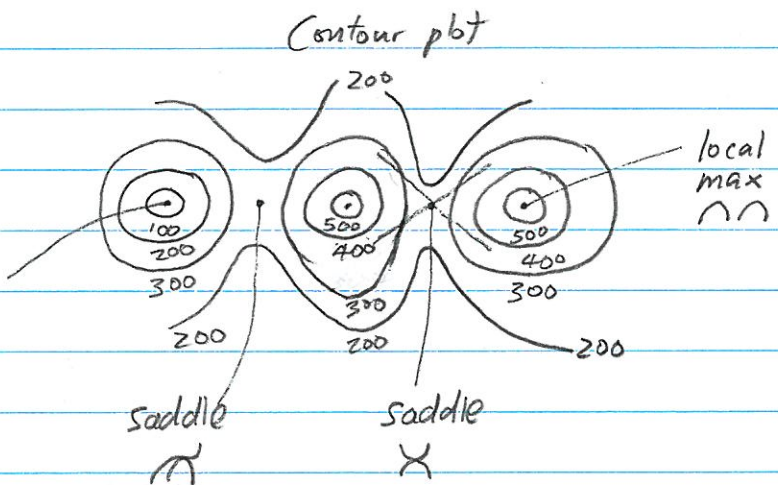 Contour plot
200
local
max
100
200
300
500
400
300
200
500
400
300
200
200
saddle
saddle